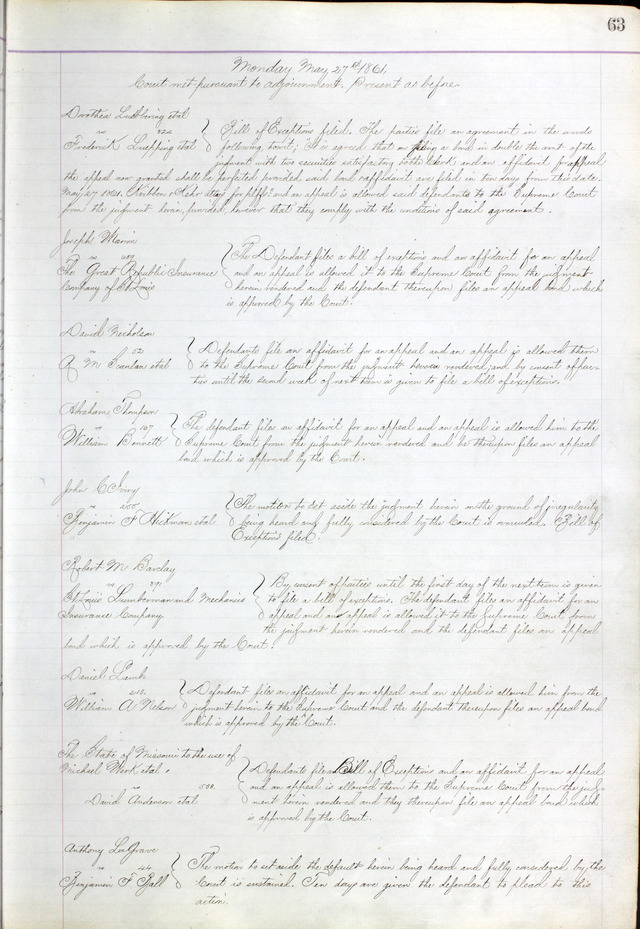 63
Monday May 27th 1861,
Court met pursuant to adjournment. Present as before
Dorothea et al
vs
Frederick Luepping et al
Bill of Exceptions filed. The parties file an agreement in the words
following towit; "It is agreed that on filing a bond in double the amt of the
judgment with two securities satisfactory to the Clerk and an affidavit for appeal
the appeal now granted shall be perfected provided said bond & affidavit are filed in ten days from this date.
May 27 1861. Krebbon & Kehr attys for plffs" and an appeal is allowed said defendants to the Supreme Court
from the judgment herein, provided, however that they comply with the conditions of said agreement.
Joseph
vs
The Great Republic Insurance
Company of St Louis
The Defendant files a bill of exceptions and an affidavit for an appeal
and an appeal is allowed it to the Supreme Court from the judgment
herein rendered and the defendant thereupon files an appeal bond which
is approved by the Court.
David Nicholson
vs 52
R M Scanlan et al
Defendants file an affidavit for an appeal and an appeal is allowed them
to the Supreme Court from the judgment herein rendered, and by consent of par-
ties until the second week of next term is given to file a bill of exceptions.
Abraham Thompson
vs 107
William Bennett
The defendant files an affidavit for an appeal and an appeal is allowed him to the
Supreme Court from the judgment herein rendered and he thereupon files an appeal
bond which is approved by the Court.
John C Ivory
vs 200
Benjamin F Hickman et al
The motion to set aside the judgment herein on the ground of irregularity
being heard and fully considered by the Court is overruled. Bill of
Exceptions filed.
Robert M Barclay
vs 291
St Louis Lumberman and Mechanics
Insurance Company
By consent of parties until the first day of the next term is given
to file a bill of exceptions. The defendant files an affidavit for an
appeal and an appeal is allowed it to the Supreme Court from
the judgment herein rendered and the defendant files an appeal
bond which is approved by the Court.
Daniel Lamb
vs 210.
William A Nelson
Defendant files an affidavit for an appeal and an appeal is allowed him from the
judgment herein to the Supreme Court and the defendant thereupon files an appeal bond
which is approved by the Court.
The State of Missouri to the use of
Michael Work et al.
vs 500
David Anderson et al
Defendants file a Bill of Exceptions and an affidavit for an appeal
and an appeal is allowed them to the Supreme Court from the judg-
ment herein rendered and they thereupon file an appeal bond which
is approved by the Court.
Anthony LaGrave
vs 144
Benjamin F Ball
The motion to set aside the default herein being heard and fully considered by the
Court is sustained. Ten days are given the defendant to plead to this
action.